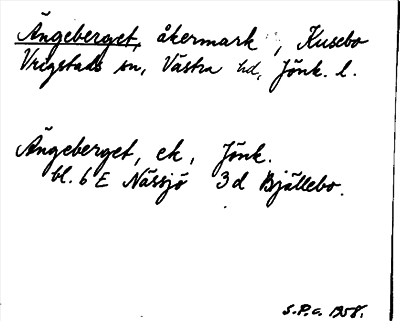 Ängeberget, åkermark, Kusebo
Vrigstads sn, Västra hd, Jönk. l.
Ängeberget, ek, Jönk.
bl. 6 E Nässjö 3d Bjällebo.
S.P.a. 1958.